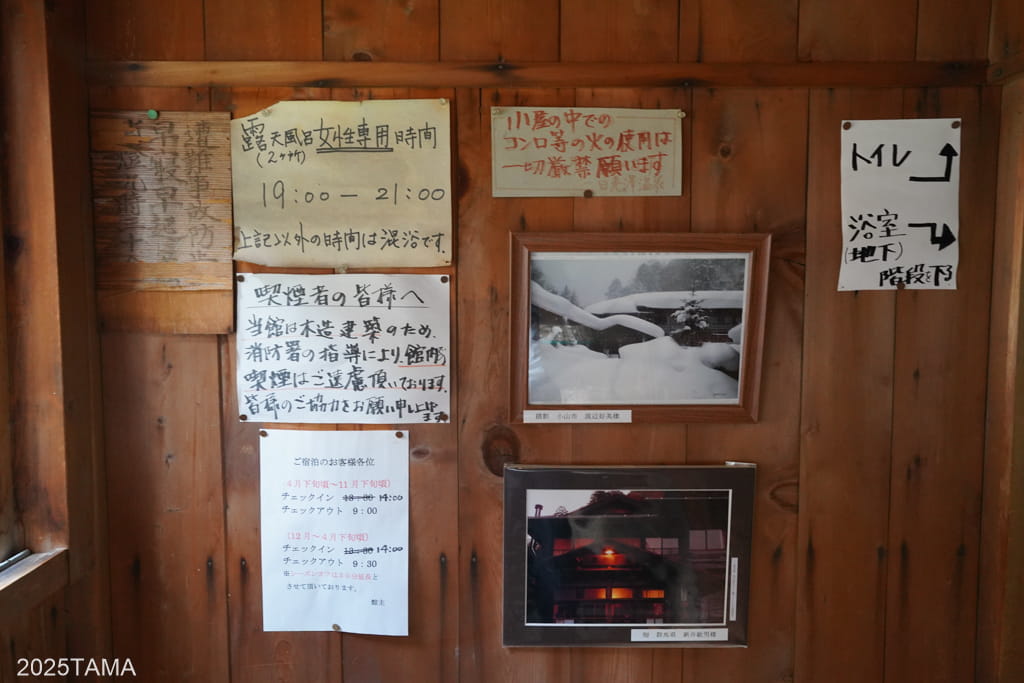 遭難事故防止
早寝早起
消燈九時
露天風呂女性専用時間
(2ヶ所)
19:00 — 21:00
上記以外の時間は混浴です.
喫煙者の皆様へ
当館は木造建築のため.
消防署の指導により.館内の
喫煙はご遠慮頂いております.
皆様のご協力をお願い申し上げ
ます
ご宿泊のお客様各位
(4月下旬頃〜11月下旬頃)
チェックイン 13:00 14:00
チェックアウト 9:00
(12月〜4月下旬頃)
チェックイン 13:30 14:00
チェックアウト 9:30
※シーズンオフは30分延長と
させて頂いております。
館主
小屋の中での
コンロ等の火の使用は
一切厳禁願います
日光澤温泉
撮影 小山市 渡辺好美様
トイレ
浴室
(地下)
階段を下る
2025TAMA